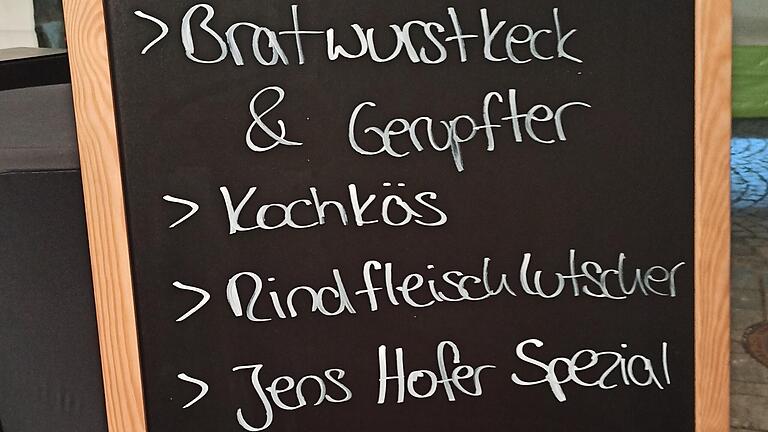 > Bratwurstkeck
& Gerupfter
> Kochkös
> Rindfleischlutscher
> Jens Hofer Spezial